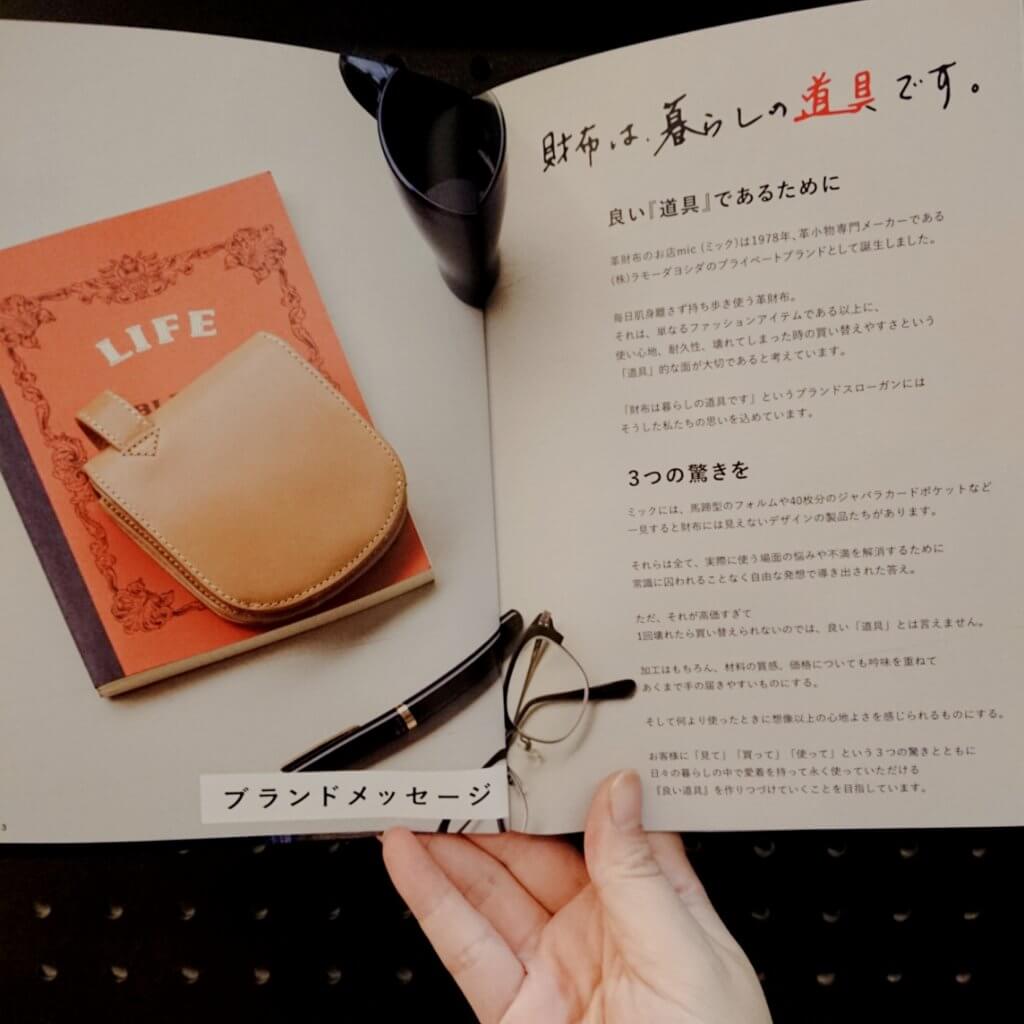 3
LIFE
ブランドメッセージ
財布は、暮らしの道具です。
良い『道具』であるために
革財布のお店mic (ミック)は1978年、革小物専門メーカーである
(株)ラモーダヨシダのプライベートブランドとして誕生しました。
毎日肌身離さず持ち歩き使う革財布。
それは、単なるファッションアイテムである以上に、
使い心地、耐久性、壊れてしまった時の買い替えやすさという
「道具」的な面が大切であると考えています。
「財布は暮らしの道具です」というブランドスローガンには
そうした私たちの思いを込めています。
3つの驚きを
ミックには、馬蹄型のフォルムや40枚分のジャバラカードポケットなど
一見すると財布には見えないデザインの製品たちがあります。
それらは全て、実際に使う場面の悩みや不満を解消するために
常識に囚われることなく自由な発想で導き出された答え。
ただ、それが高価すぎて
1回壊れたら買い替えられないのでは、良い「道具」とは言えません。
加工はもちろん、材料の質感、価格についても吟味を重ねて
あくまで手の届きやすいものにする。
そして何より使ったときに想像以上の心地よさを感じられるものにする。
お客様に「見て」「買って」「使って」という3つの驚きとともに
日々の暮らしの中で愛着を持って永く使っていただける
『良い道具』を作りつづけていくことを目指しています。